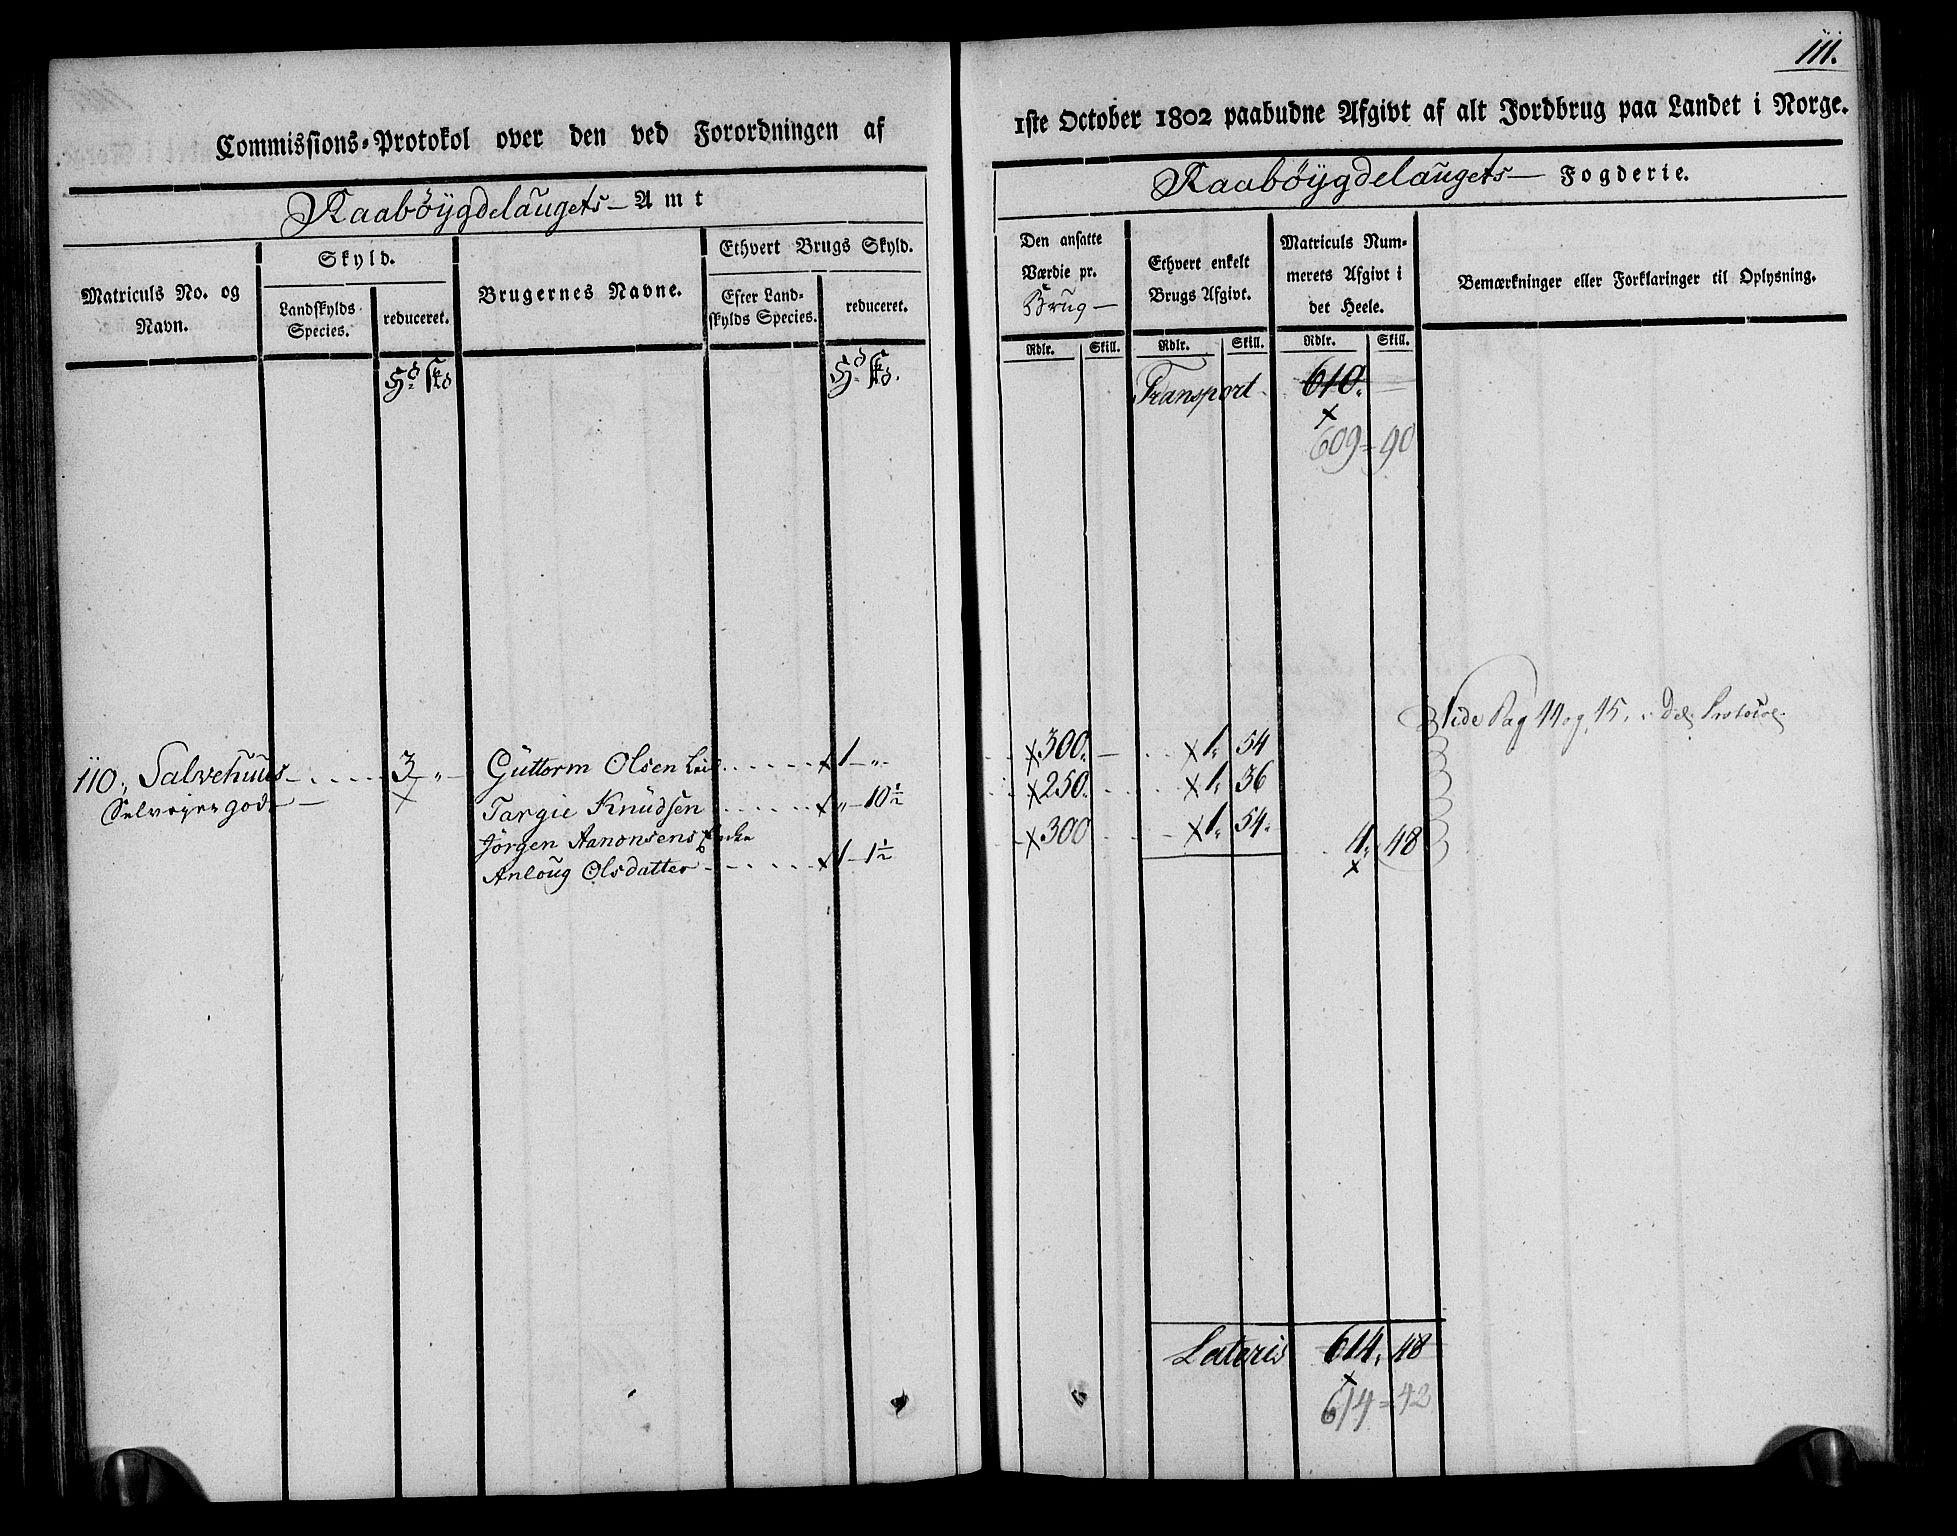 111.
Commissions-Protokol over den ved Forordningen af
1ste October 1802 paabudne Afgivt af alt Jordbrug paa Landet i Norge.
Raabøygdelaugets Amt
Raabøygdelaugets Fogderie.
Matriculs No. og Navn.
Skyld.
Landskylds Species.
reduceret.
Brugernes Navne.
Ethvert Brugs Skyld.
Efter Landskylds Species.
reduceret.
Den ansatte Værdie pr. Brug
Ethvert enkelt Brugs Afgivt.
Matriculs Nummerets Afgivt i det Heele.
Bemærkninger eller Forklaringer til Oplysning.
Rdlr. Skill. Rdlr. Skill. Rdlr. Skill.
Transport 610.
609 = 90
Vide Pag 44 og 45,
110, Salvehuus 3 „ Guttorm Olsen 1 „ 300. 1. 54
Selveyer gods Targie Knudsen „ 10½ 250. 1. 36
Jörgen Aanonsens Enke
Anloug Olsdatter 1 1½ 300 1. 54. 4. 48
Lateris 614. 48
614 = 42